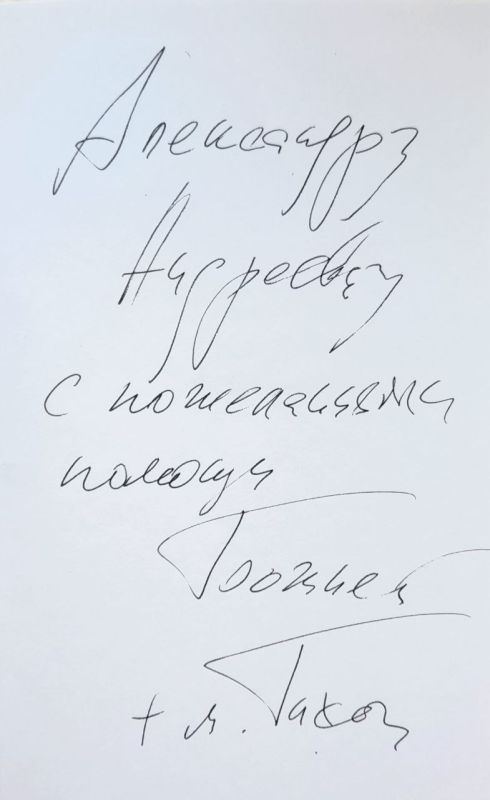 Александру
Андреевичу
с пожеланиями
помощи
Божией
+ м. Тихон